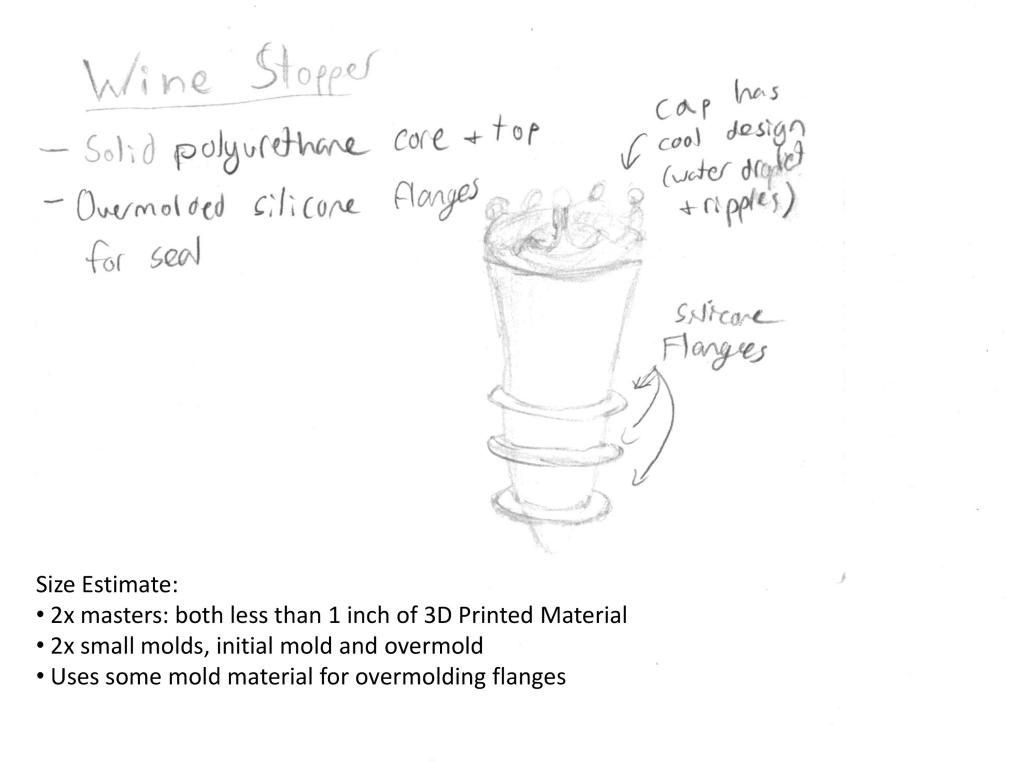 Wine Stopper
- Solid polyurethane core + top
- Overmolded silicone flanges
for seal
cap has
cool design
(water droplet
+ ripples)
Silicone
Flanges
Size Estimate:
• 2x masters: both less than 1 inch of 3D Printed Material
• 2x small molds, initial mold and overmold
• Uses some mold material for overmolding flanges